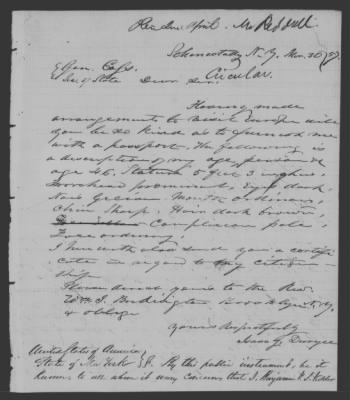 Schenectady N.Y. Mar. 26 /57
Circular.
Gen. Cass
Sec. of State Dear Sir.
Having made
arrangements to visit Europe will
you be so kind as to furnish me
with a passport. The following is
a description of my person &
age 46, Stature 5 feet 3 inches,
Forehead prominent, eyes dark,
Nose Grecian Mouth ordinary,
Chin Sharp, Hair dark brown,
Complexion pale
Face oval
I herewith also send you a certifi
cate in regard to my citizen-
ship
Please direct yours to the Rev.
Wm I. Budington Brooklyn N.Y.
& oblige
Yours Respectfully
United States of America
State of New York By this public instrument, be it
known to all whom it may concern that I, Benjamin